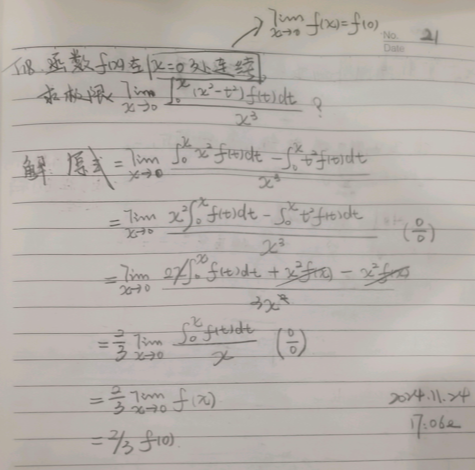 lim x→0 f(x)=f(0)
No. 21
Date
T18. 函数f(x)在x=0处连续
求极限 lim x→0 ∫₀ˣ(x²-t²)f(t)dt / x³ ?
解 原式 = lim x→0 (∫₀ˣ x²f(t)dt - ∫₀ˣ t²f(t)dt) / x³
= lim x→0 (x²∫₀ˣ f(t)dt - ∫₀ˣ t²f(t)dt) / x³ (0/0)
= lim x→0 (2x∫₀ˣ f(t)dt + x²f(x) - x²f(x)) / 3x²
= 2/3 lim x→0 ∫₀ˣ f(t)dt / x (0/0)
= 2/3 lim x→0 f(x)
= 2/3 f(0)
2024.11.24